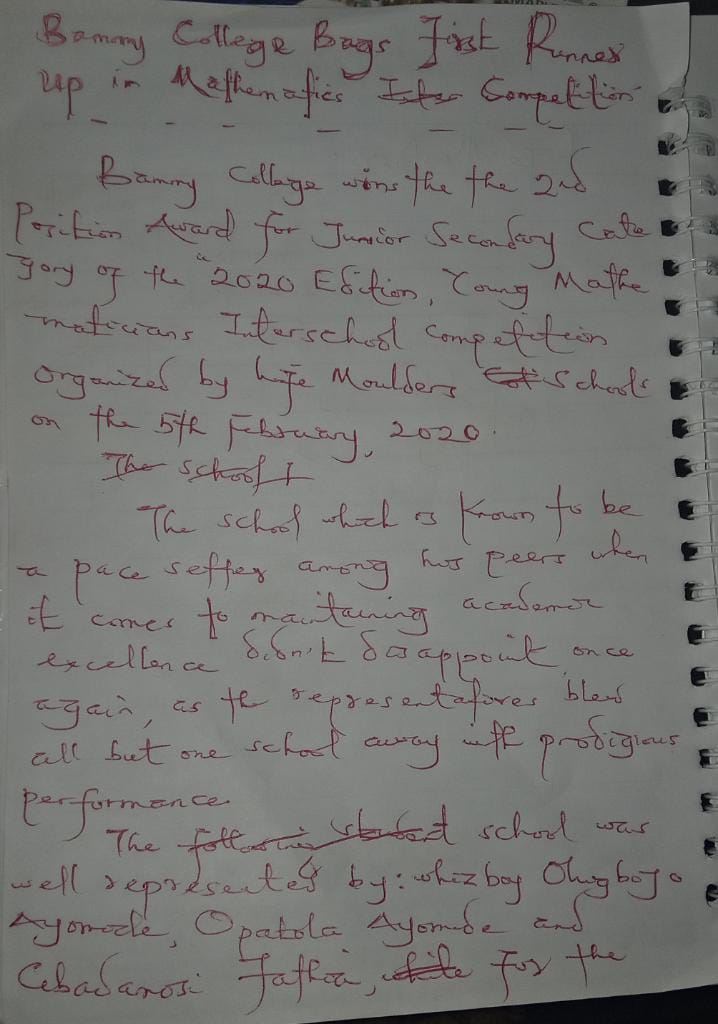 Bammy College Bags First Runner
up in Mathematics Inter Competition
Bammy College wins the the 2nd
Position Award for Junior Secondary Cate
gory of the "2020 Edition, Young Mathe
maticians Interschool competition
organized by Life Moulders Schools
on the 5th February, 2020.
The school I
The school which is known to be
a pace setter among his peers when
it comes to maintaining academic
excellence didn't disappoint once
again, as the representatives blew
all but one school away with prodigious
performance
The following student school was
well represented by: whizboy Olugboyo
Ayomide, Opatola Ayomide and
for the